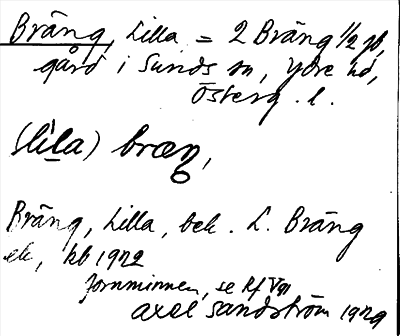 Bräng, Lilla = 2 Bräng 1/2 gb,
gård i Sunds sn, Ydre hd,
Österg. l.
(lìla) bræŋ,
Bräng, Lilla, bek. L. Bräng
ek, kb 1922
fornminnen, se Rf
Axel Sandström 1929